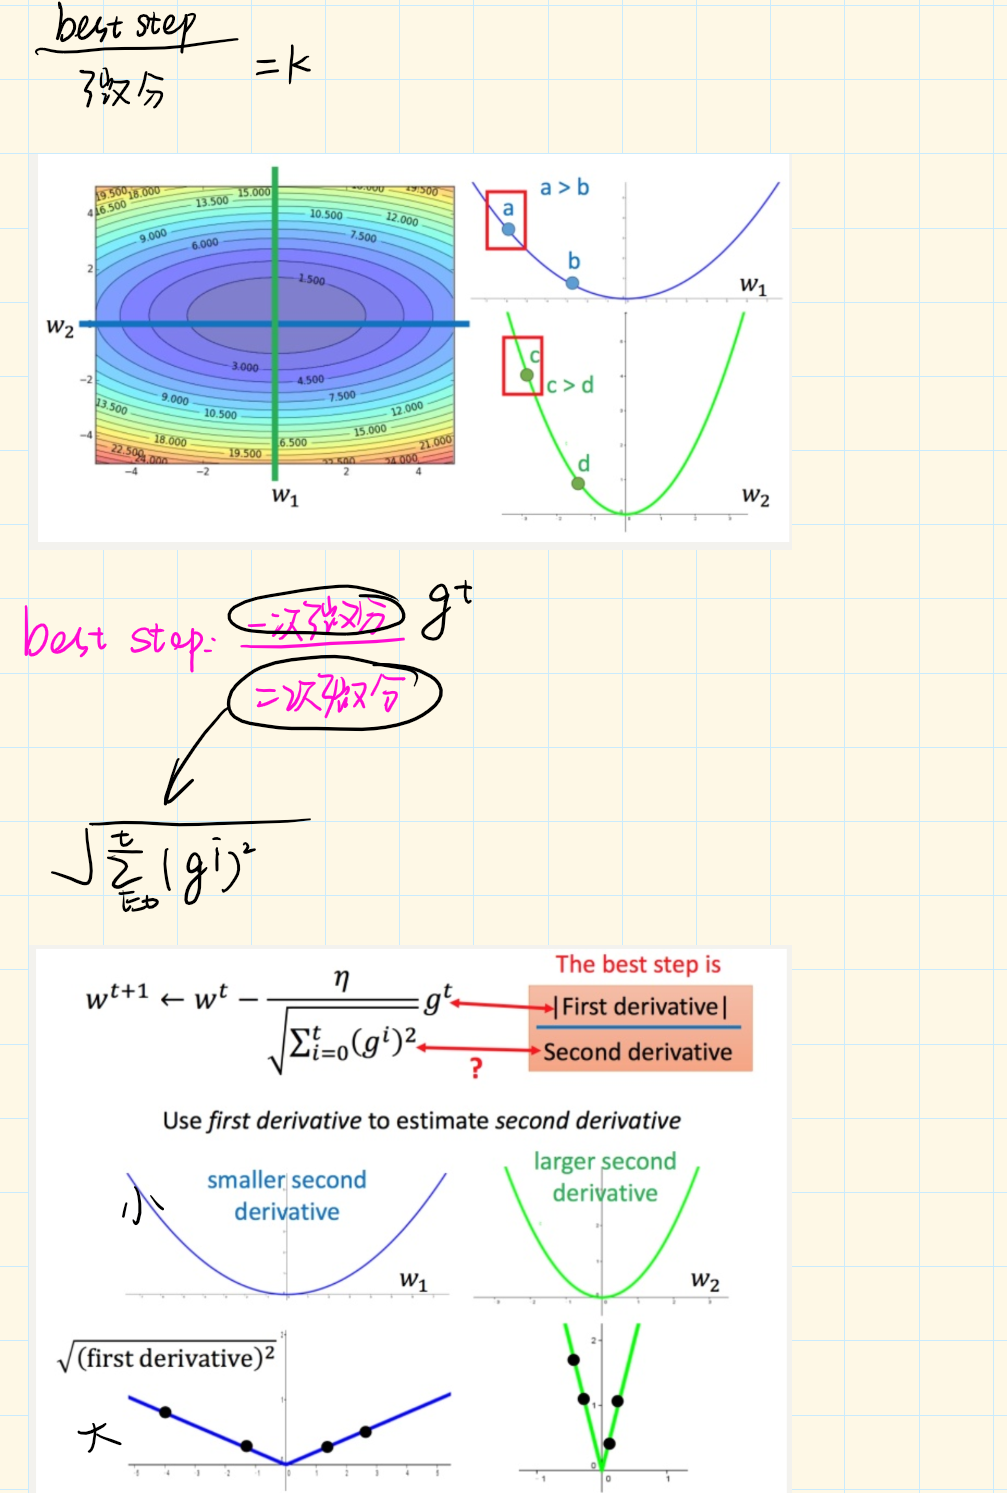 best step
微分
= k
19.500 18.000 15.000 19.500
16.500 13.500 10.500 12.000
9.000 6.000 7.500
1.500
3.000 4.500
9.000 10.500 7.500 12.000
13.500 18.000 19.500 16.500 15.000 21.000
22.500 24.000 22.500 24.000
4
2
-2
-4
-4 -2 2 4
w₂
w₁
a > b
a
b
w₁
c
c > d
d
w₂
best step: 一次微分 g^t
二次微分
√∑ᵗ (gⁱ)²
w^{t+1} ← w^t − η / √(∑_{i=0}^{t}(g^i)²) g^t
The best step is
|First derivative|
Second derivative
?
Use first derivative to estimate second derivative
smaller second
derivative
小
w₁
larger second
derivative
w₂
√(first derivative)²
大
-5 -4 -3 -2 -1 0 1 2 3 4 5
1
2
1
0
-1 0 1